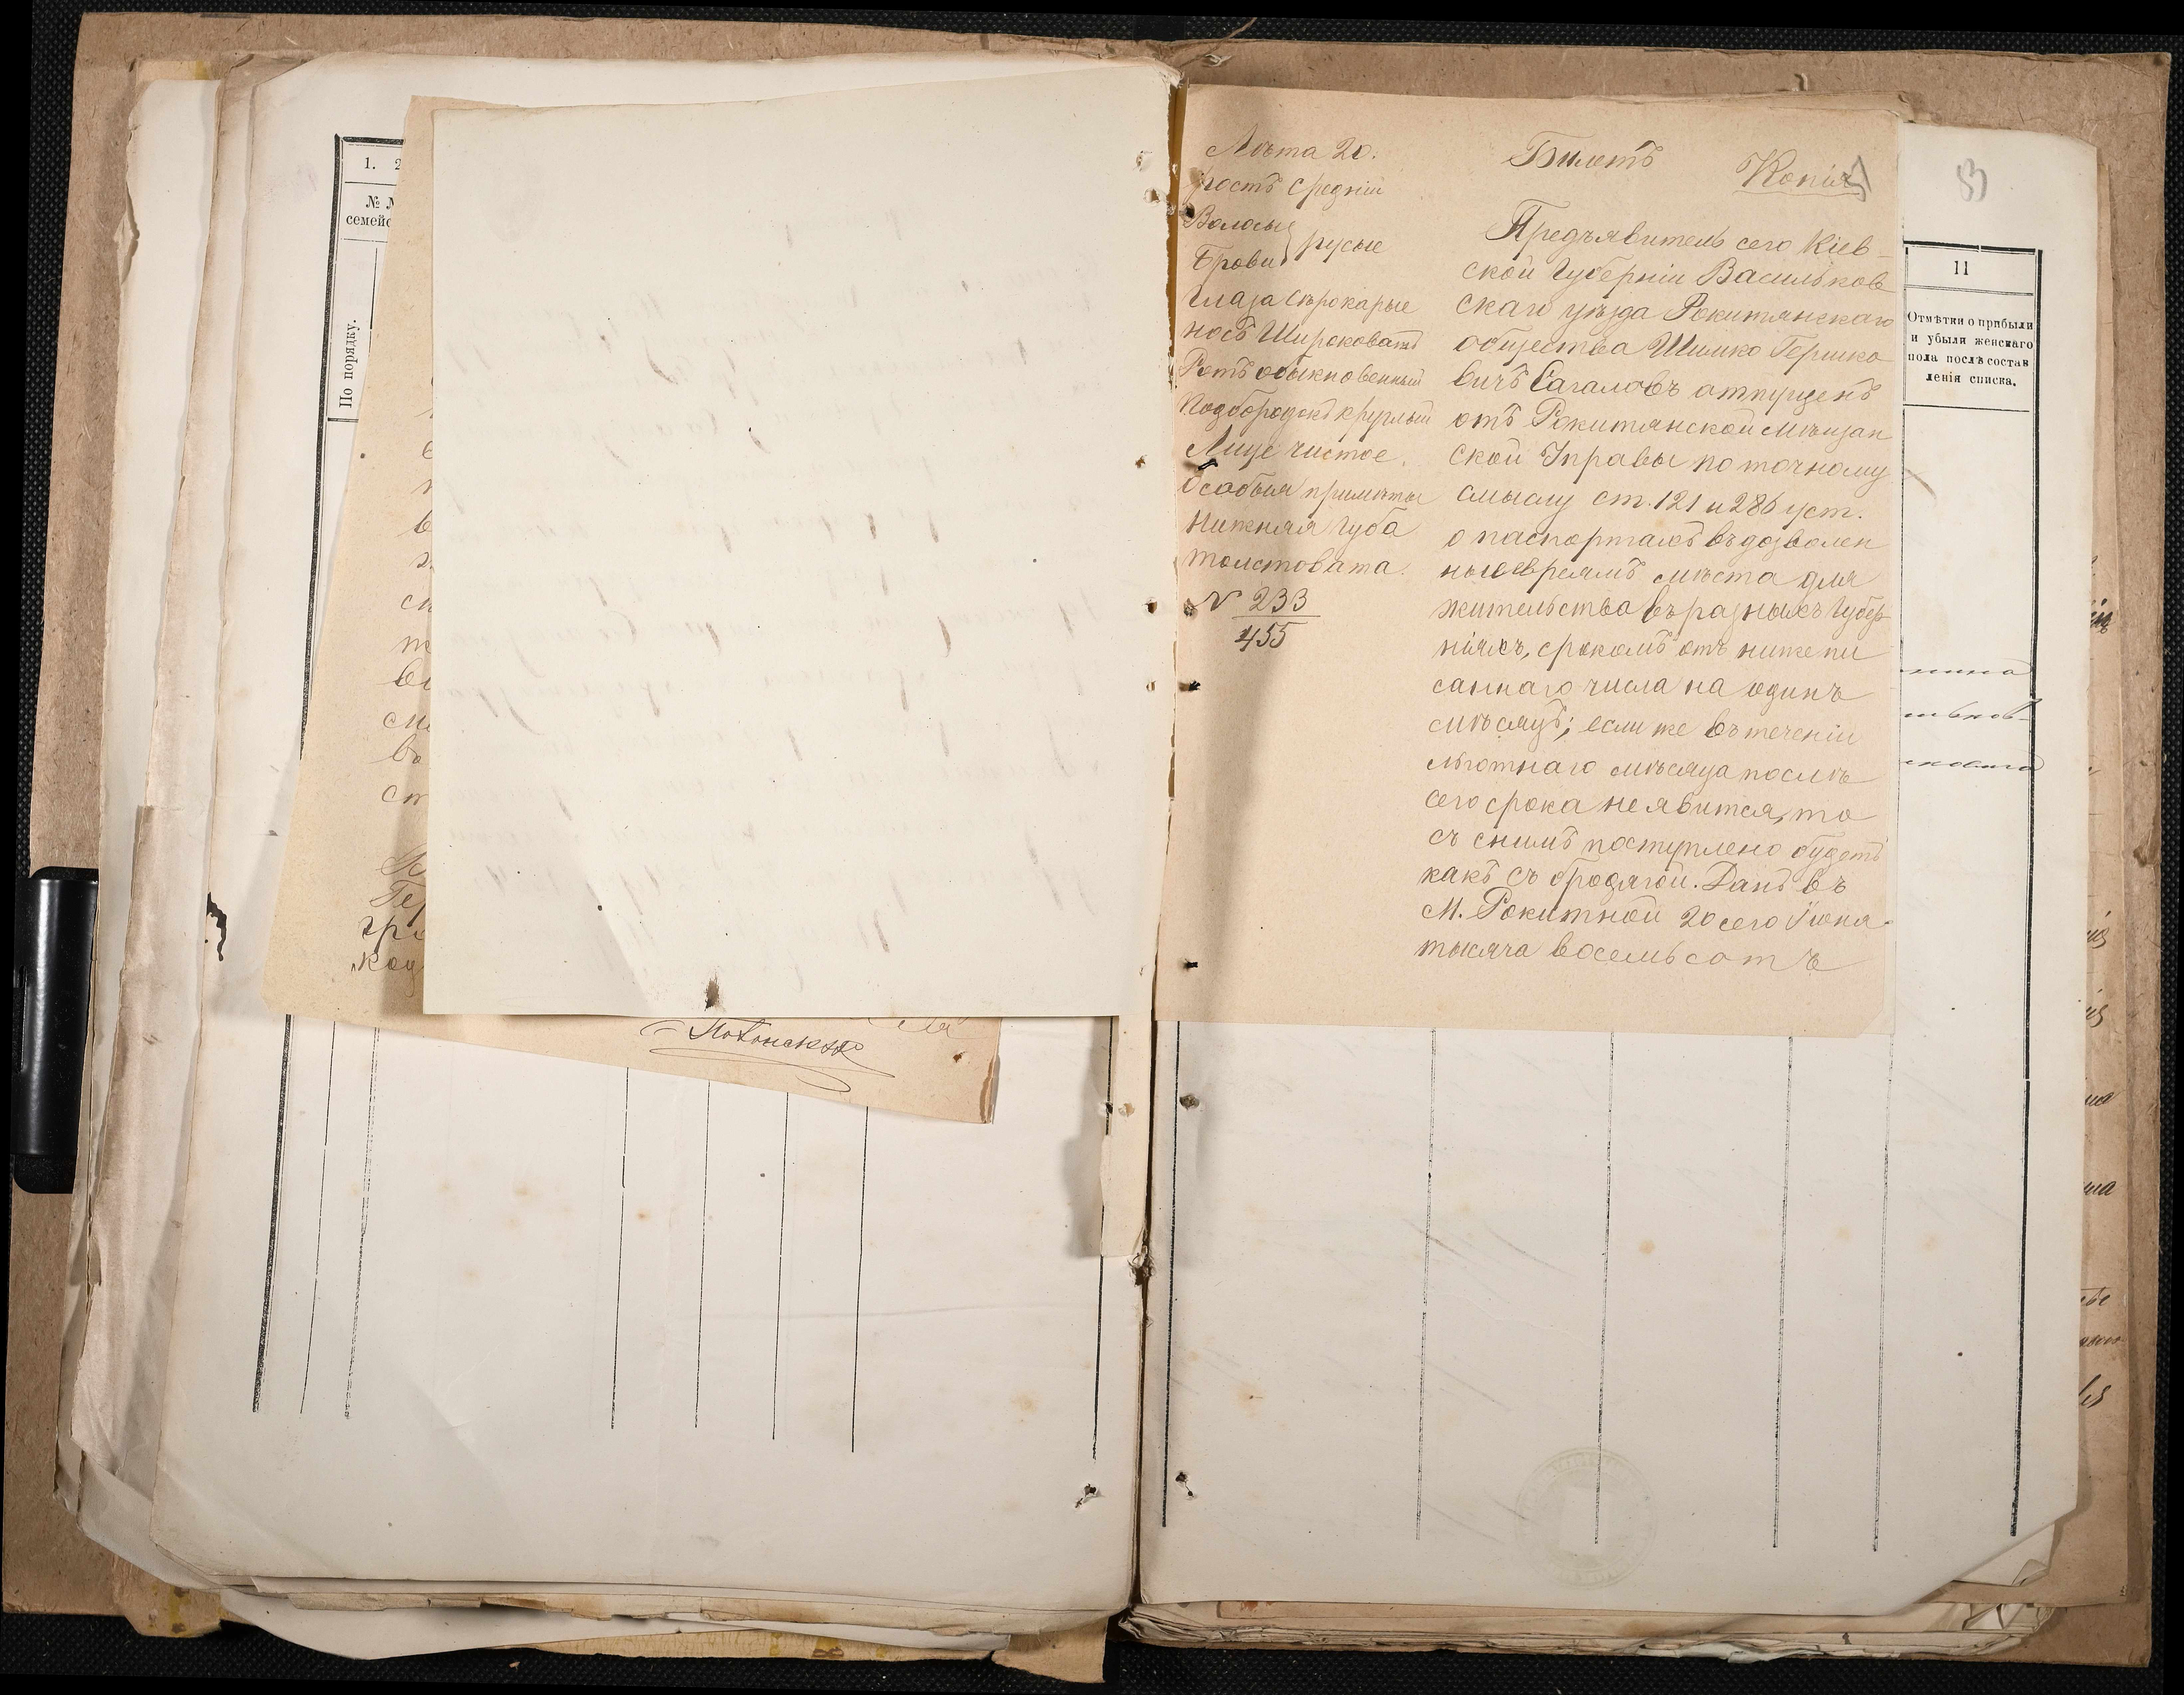 1. 2
№ №
семейс
По порядку.
в
ск
т
ви
сни
во
ст
Гер
гра
Лѣта 20.
ростъ средній
Волосы } русые
Брови
глаза сѣрокарые
носъ Широковатъ
Ротъ обыкновенный
Подбородокъ круглый
Лице чистое.
Особыя примѣты
Нижняя губа
толстовата.
N 233
455
Билетъ
Копія
53
Предъявитель сего Кіев-
ской Губерніи Васильков
скаго уѣзда Рокитянскаго
общества Шимко Гершко
вичъ Сагаловъ отпущенъ
отъ Рокитянской Мѣщан
ской Управы по точному
смыслу ст. 121 и 286 уст.
о паспортахъ въ дозволен
ные евреямъ мѣста для
жительства въ разныхъ Губер
ніяхъ, срокомъ отъ нижепи
саннаго числа на одинъ
мѣсяцъ; если же въ теченіи
льготнаго мѣсяца послѣ
сего срока не явится, то
съ нимъ поступлено будетъ
какъ съ бродягой. Данъ въ
М. Рокитной 20 сего Іюня
тысяча восемьсотъ
11
Отмѣтки о прибыли
и убыли женскаго
пола послѣ состав
ленія списка.